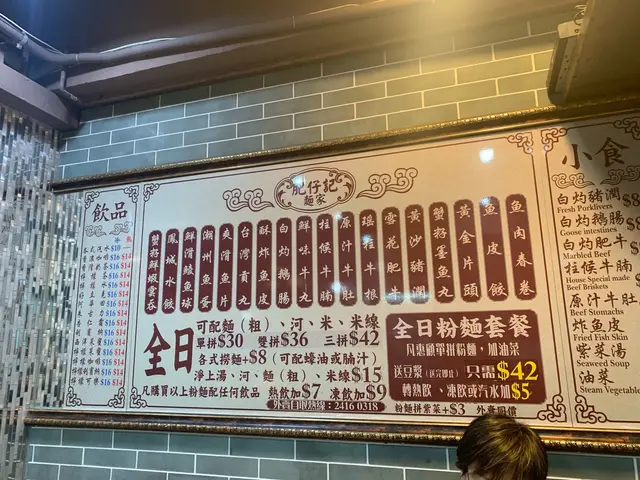 肥仔記
麵家
飲品
凍 熱
蟹籽鮮蝦雲吞
鳳城水餃
鮮滑鯪魚球
潮州魚蛋
爽滑魚片
台灣貢丸
酥炸魚皮
白灼鵝腸
鮮味牛丸
柱候牛腩
原汁牛肚
瑶柱牛根
雪花肥牛
黃沙豬潤
蟹籽墨魚丸
黃金片頭
魚皮餃
魚肉春卷
全日
可配麵（粗）、河、米、米線
單拼$30 雙拼$36 三拼$42
各式撈麵+$8（可配蠔油或腩汁）
淨上湯、河、麵（粗）、米線$15
凡購買以上粉麵配任何飲品 熱飲加$7 凍飲加$9
外賣柯打熱線：2416 0318
全日粉麵套餐
凡惠顧單拼粉麵，加油菜
送豆漿（送完即止）只需$42
轉熱飲、凍飲或汽水加$5
粉麵拼紫菜+$3 外賣同價
小食
白灼豬潤
Fresh Porklivers
白灼鵝腸
Goose intestines
白灼肥牛
Marbled Beef
柱候牛腩
House Special made
Beef Briskets
原汁牛肚
Beef Stomachs
炸魚皮
Fried Fish Skin
紫菜湯
Seaweed Soup
油菜
Steam Vegetable